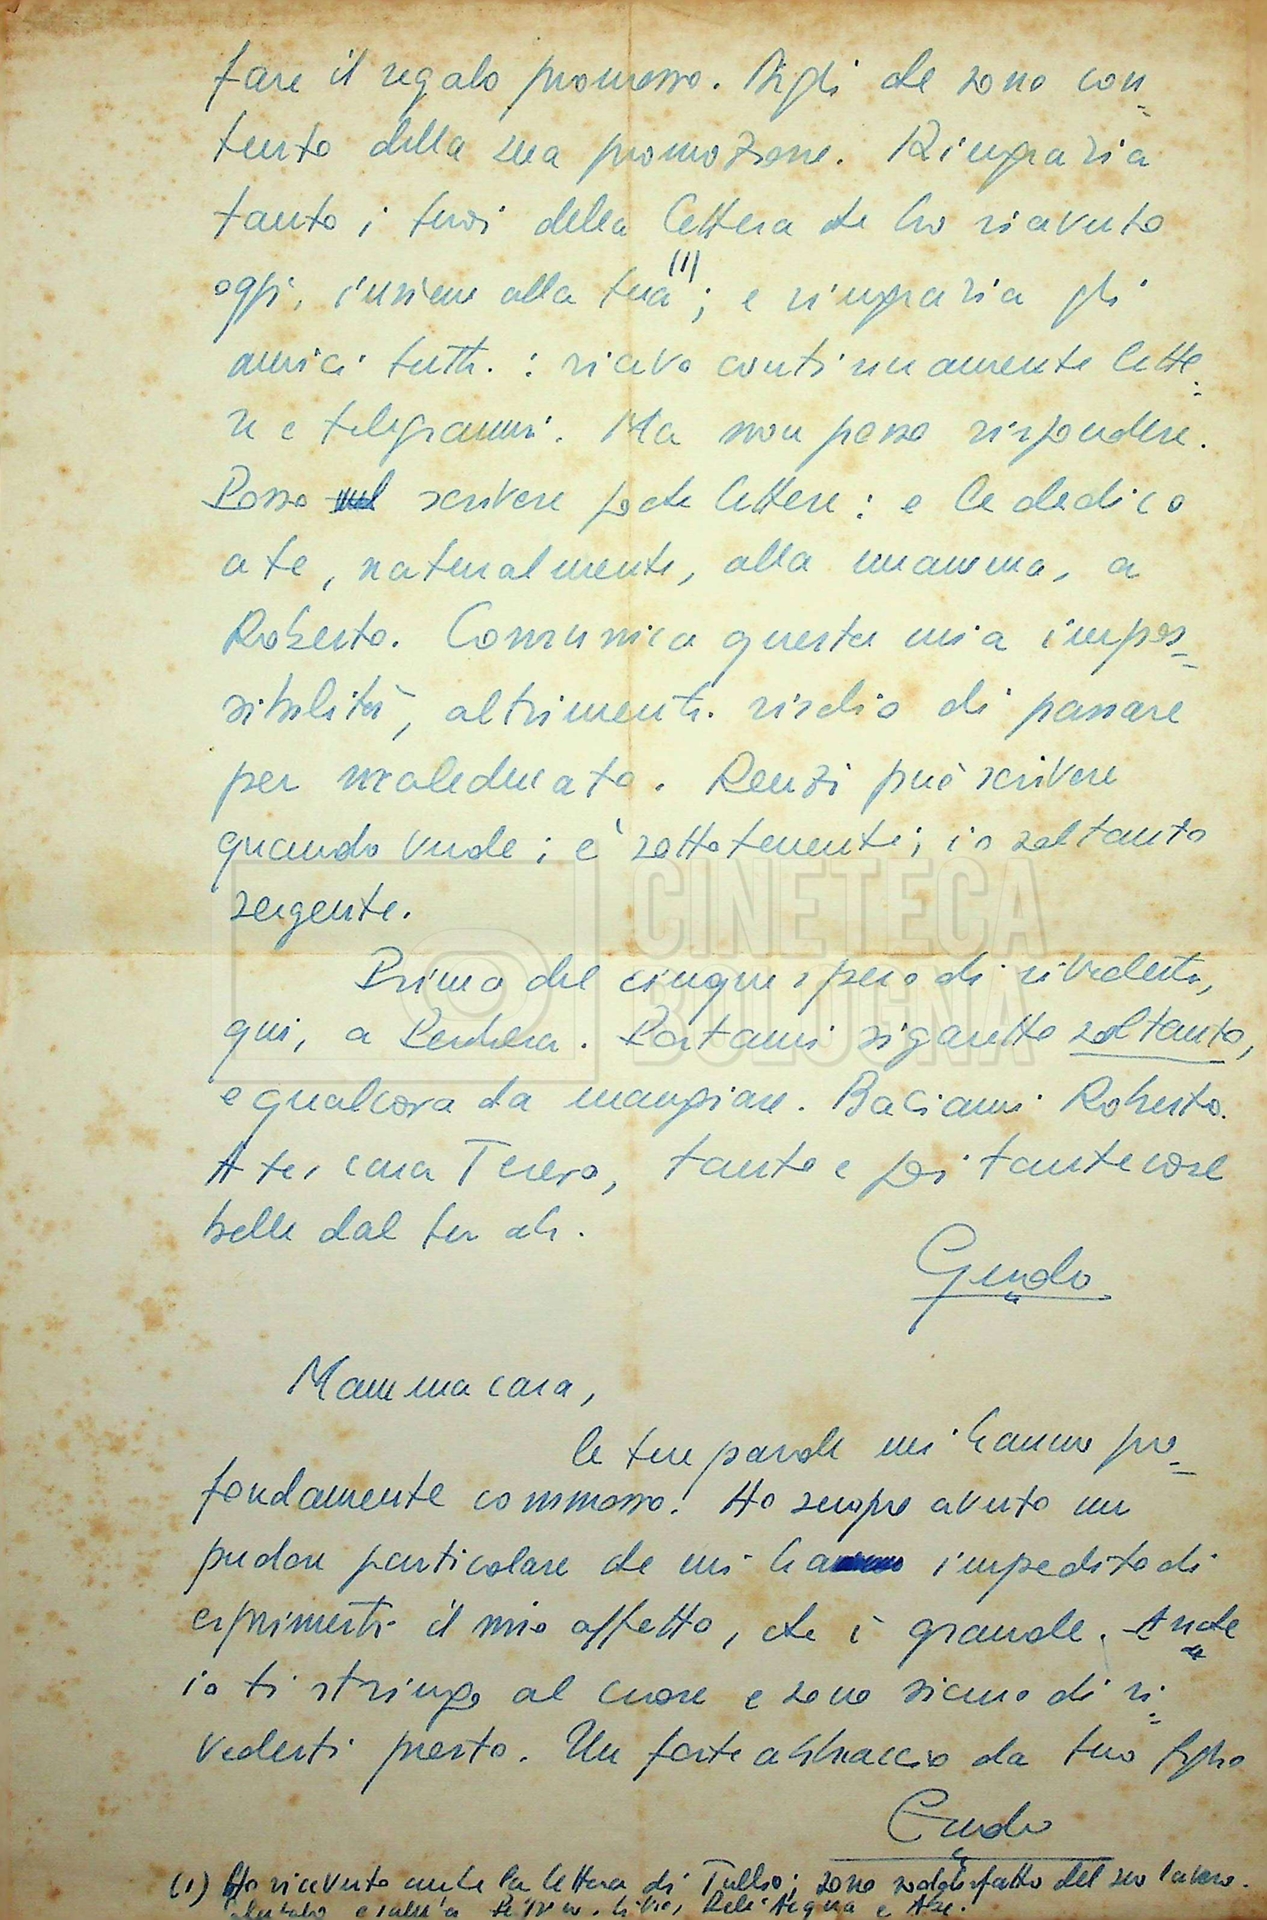 fare il regalo promesso. Digli che sono con-
tento della sua promozione. Ringrazia
tanto i tuoi della lettera che ho ricevuto
oggi, insieme alla tua (1); e ringrazia gli
amici tutti: ricevo continuamente lette-
re e telegrammi. Ma non posso rispondere.
Posso scrivere poche lettere: e le dedico
a te, naturalmente, alla mamma, a
Roberto. Comunica questa mia impos-
sibilità, altrimenti rischio di passare
per maleducato. Renzi può scrivere
quando vuole; è sottotenente; io soltanto
sergente.
Prima del cinque spero di rivederti,
qui, a Peschiera. Portami sigarette soltanto,
e qualcosa da mangiare. Baciami Roberto.
A te, cara Teresa, tante e poi tante cose
belle dal tuo
Guido
Mamma cara,
le tue parole mi hanno pro-
fondamente commosso. Ho sempre avuto un
pudore particolare che mi ha impedito di
esprimerti il mio affetto, che è grande. Anche
io ti stringo al cuore e sono sicuro di ri-
vederti presto. Un forte abbraccio da tuo figlio
Guido
(1) Ho ricevuto anche la lettera di Tullio; sono soddisfatto del suo lavoro.
CINETECA
BOLOGNA